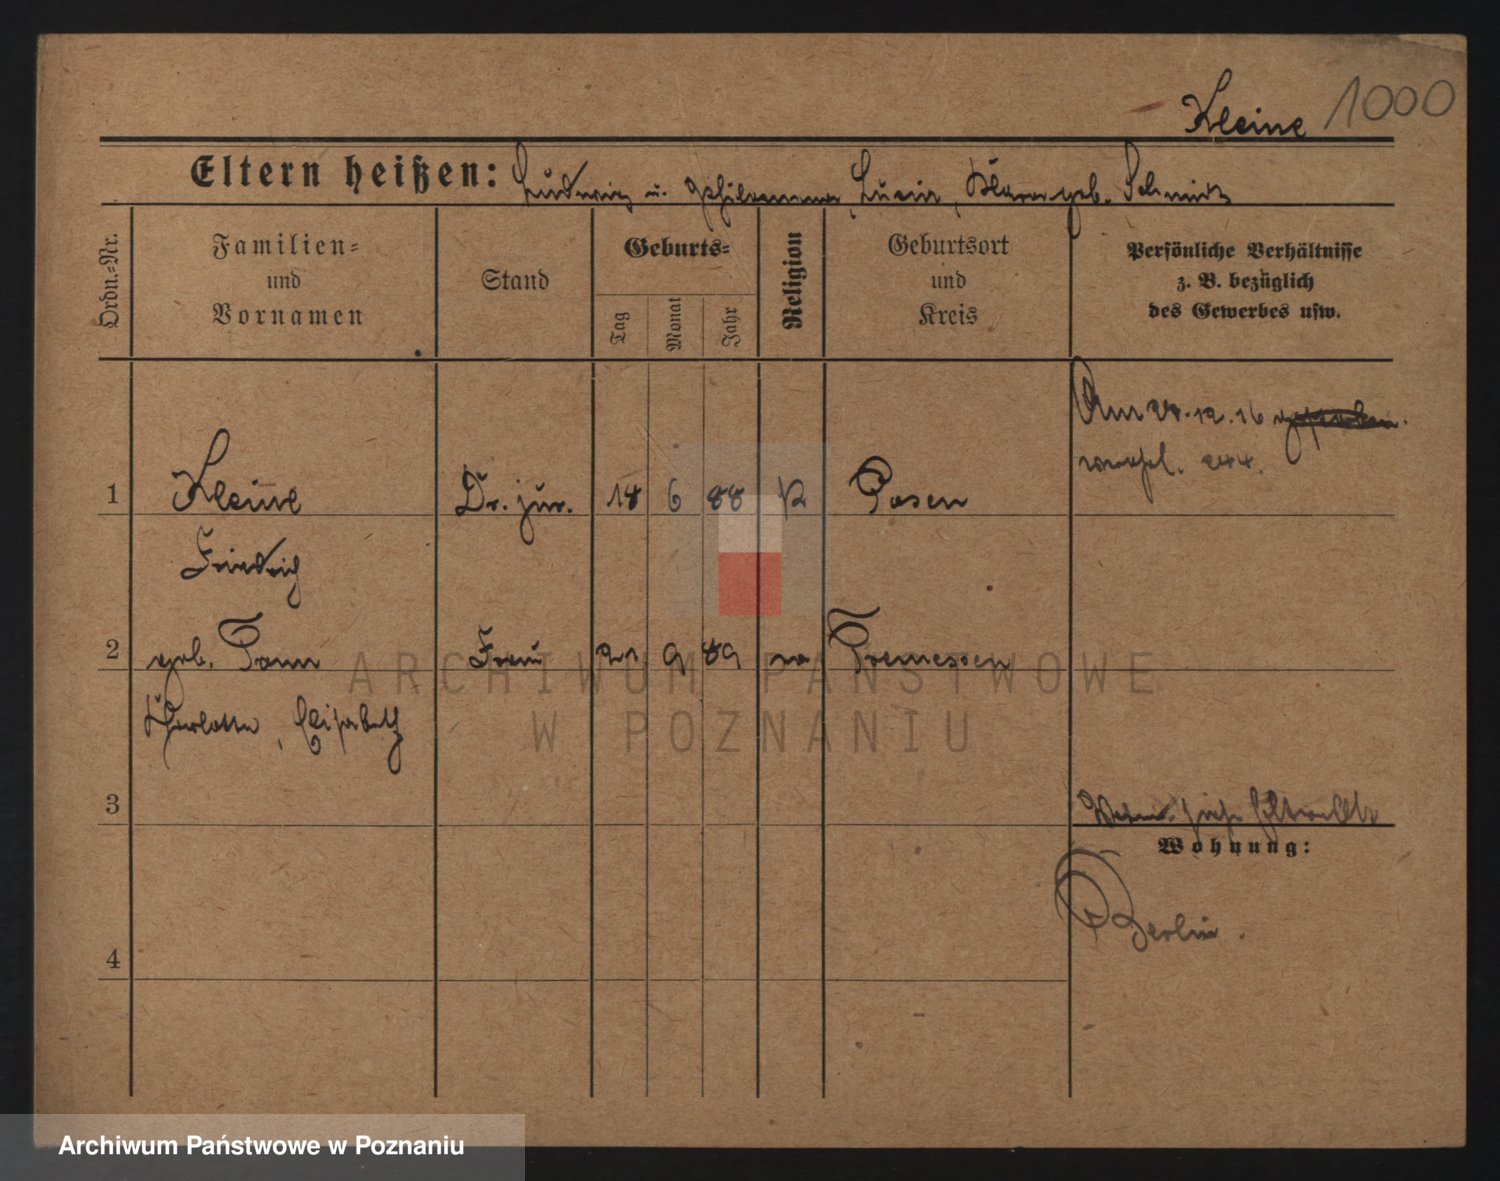 Kleine 1000
Eltern heißen: Ludwig u. Philomena, Lucia, Klara geb. Schmitz
Ordn.-Nr.
Familien-
und
Vornamen
Stand
Geburts-
Tag
Monat
Jahr
Religion
Geburtsort
und
Kreis
Persönliche Verhältnisse
z. B. bezüglich
des Gewerbes usw.
Am 27.12.16
244.
1 Kleine Dr. jur. 18 6 88 Posen
Friedrich
2 geb. Tonn Frau 21 9 89 Tremessen
Charlotte, Elisabeth
3
Wohnung:
Berlin.
4
ARCHIWUM PAŃSTWOWE
W POZNANIU
Archiwum Państwowe w Poznaniu